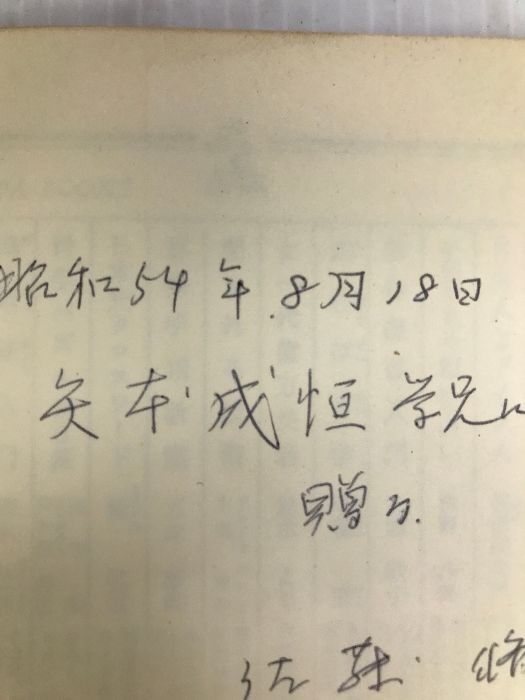 昭和54年8月18日
矢本成恒学兄に
贈る.
佐藤